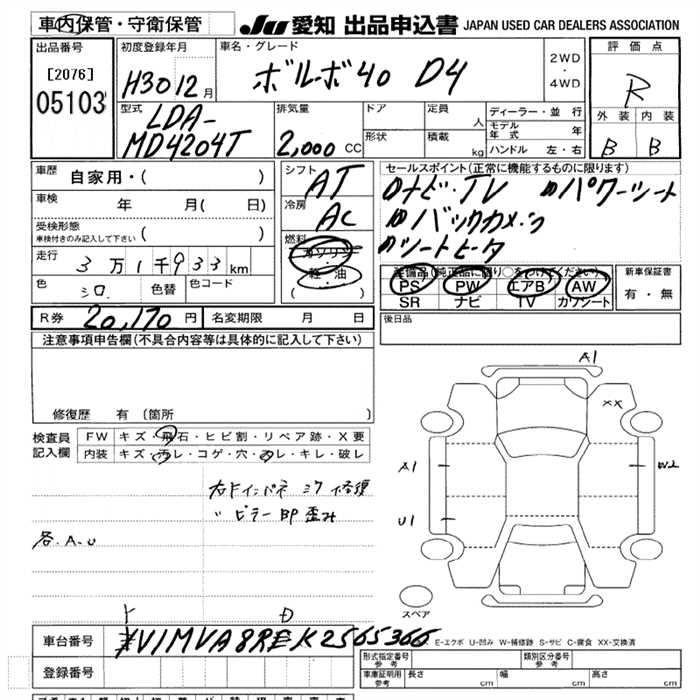 車内保管・守衛保管
JU 愛知 出品申込書 JAPAN USED CAR DEALERS ASSOCIATION
出品番号
[2076]
05103
初度登録年月
H30 12月
車名・グレード
ボルボ40 D4
2WD
・
4WD
評価点
R
外装 内装
B B
型式
LDA-
MD4204T
排気量
2,000 CC
ドア
定員 人
形状
積載 kg
ディーラー・並行
モデル年式 年
ハンドル 左・右
車歴
自家用・( )
車検 年 月( 日)
受検形態
車検付きのみ記入して下さい ( )
走行 3万1千933km
色 シロ 色替
色コード
シフト
AT
冷房
AC
燃料
ガソリン
軽・油
( )
セールスポイント(正常に機能するものに限ります)
ナビ・TV パワーシート
バックカメラ
シートヒータ
装備品(純正品に限り○をつけてください)
PS PW エアB AW
SR ナビ TV カワシート
新車保証書
有・無
R券 20,170円
名変期限 月 日
後日品
注意事項申告欄(不具合内容等は具体的に記入して下さい)
修復歴 有 〔箇所
検査員
記入欄
FW キズ・飛石・ヒビ割・リペア跡・X要
内装 キズ・汚レ・コゲ・穴・スレ・キレ・破レ
右ドインパネ ミク 修復
〃 ピラー部 歪み
各.A.U
A1
XX
A1
W2
U1
スペア
E-エクボ U-凹み W-補修跡 S-サビ C-腐食 XX-交換済
Y D
車台番号 YV1MVA8REK2565366
登録番号
形式指定番号
参考
類別区分番号
参考
車庫証明用
参考
長さ cm 幅 cm 高さ cm